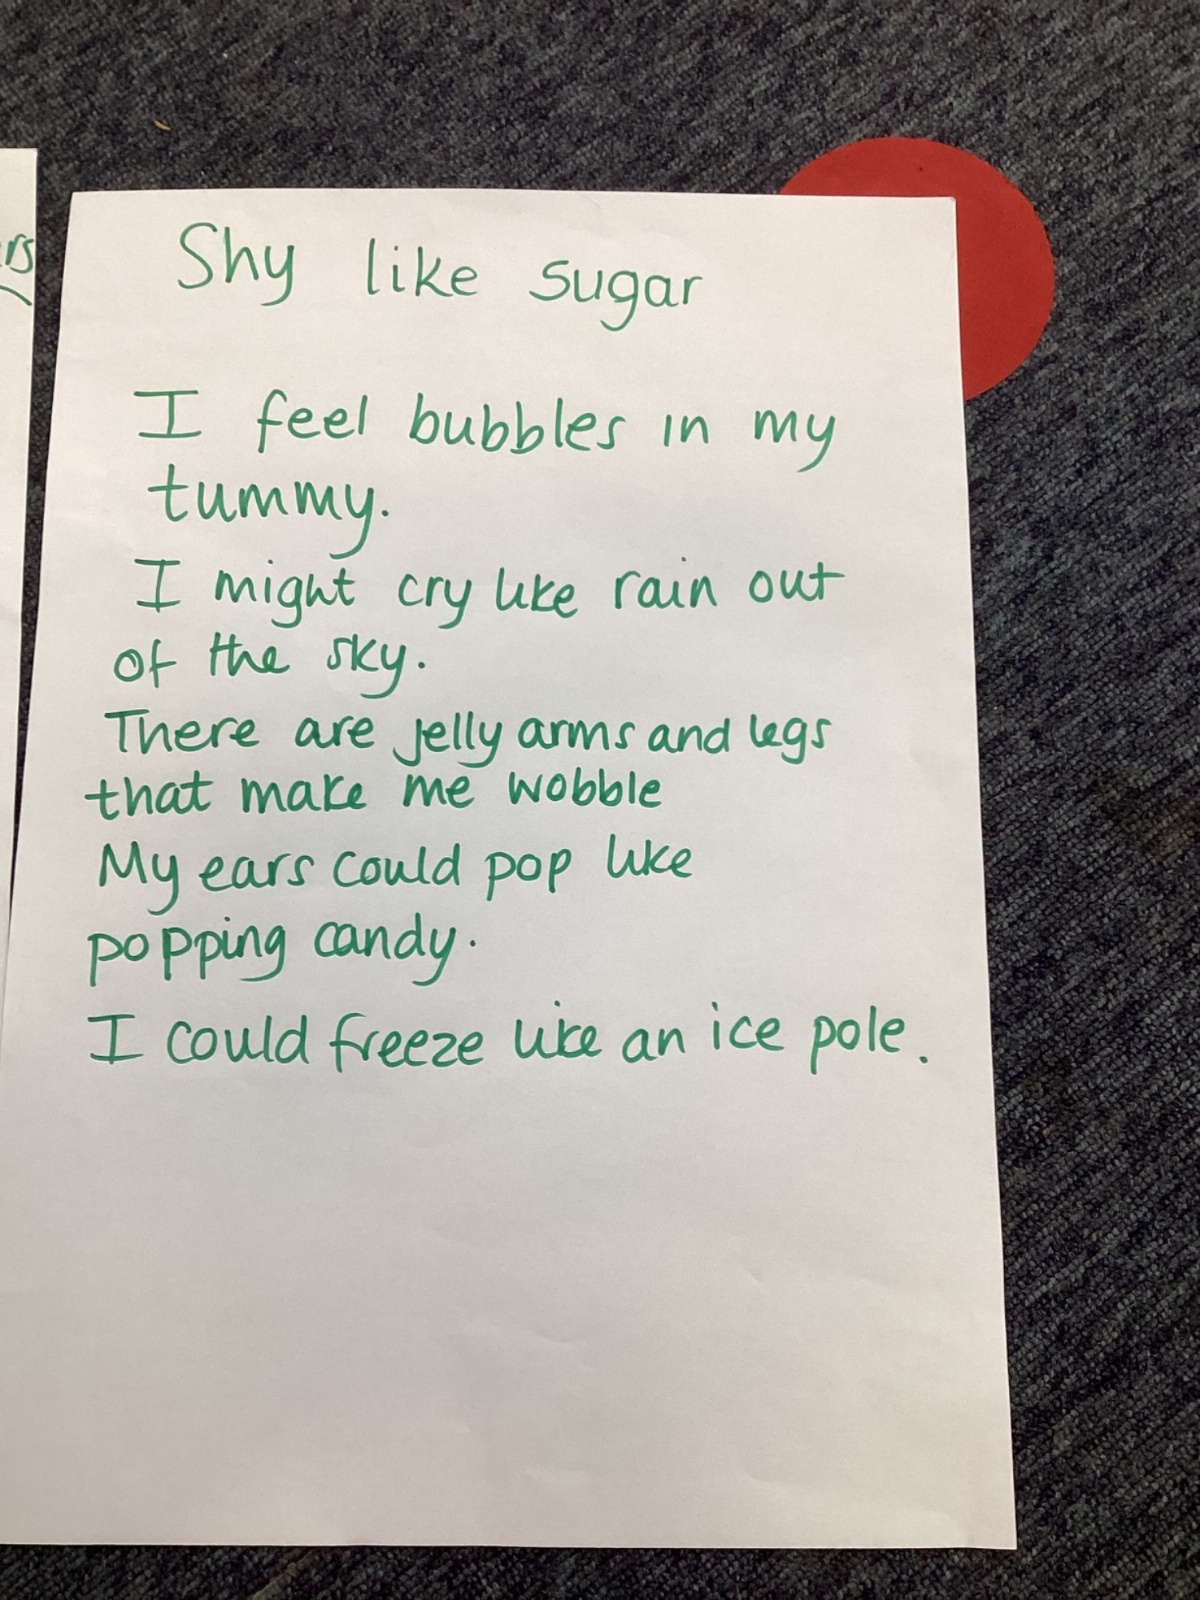 Shy like sugar
I feel bubbles in my
tummy.
I might cry like rain out
of the sky.
There are jelly arms and legs
that make me wobble
My ears could pop like
popping candy.
I could freeze like an ice pole.